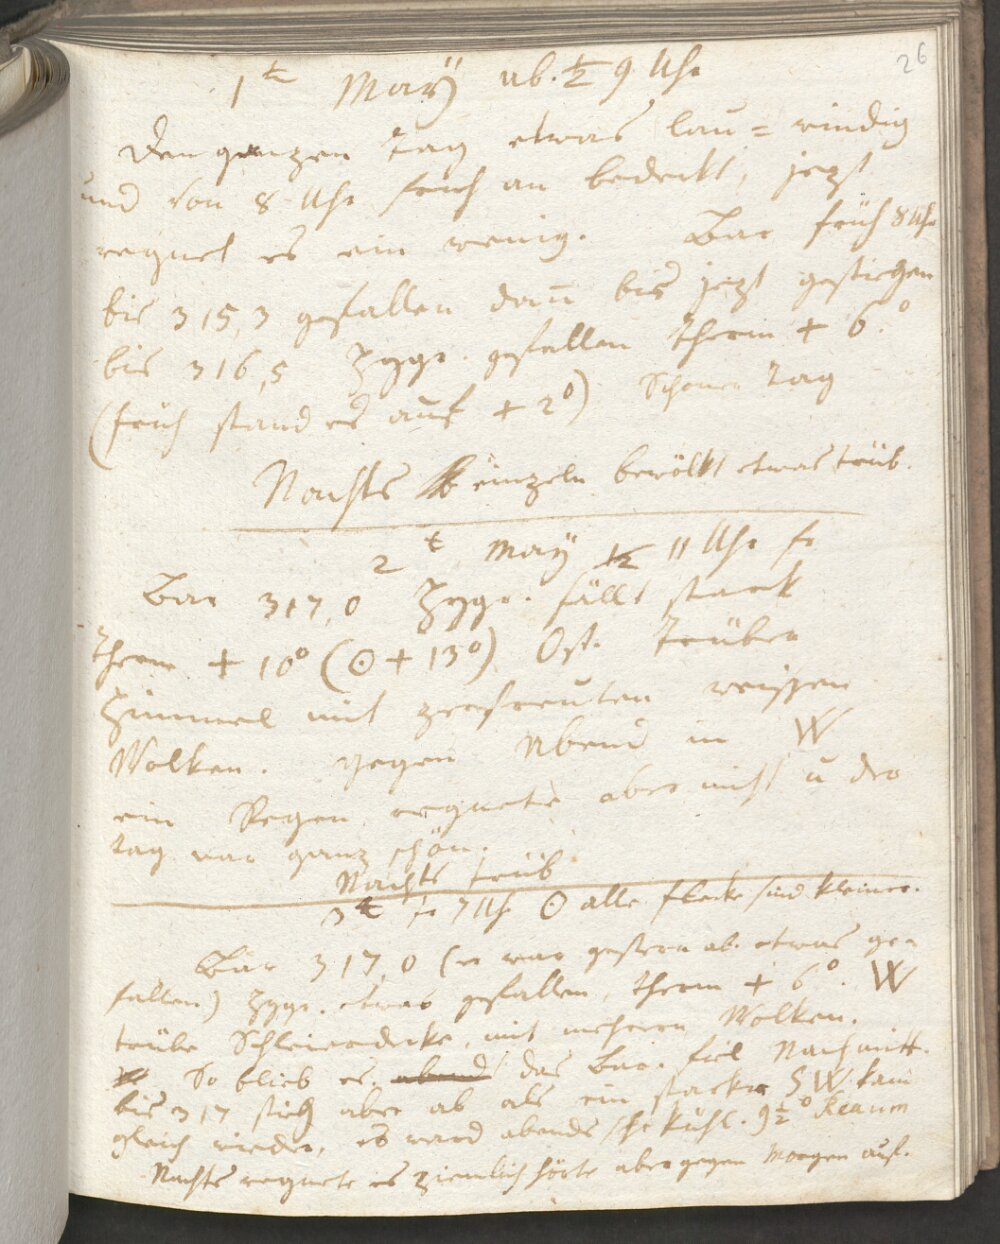 26
1 t May ab. ½ 9 Uhr
Den ganzen Tag etwas lau = windig
und von 8 Uhr früh an bedeckt, jezt
regnet es ein wenig. Bar früh 8 Uhr
bis 315,3 gefallen dañ bis jezt gestiegen
bis 316,5 Hygr. gefallen Therm + 6.°
(früh stand es auf + 2°) Schöner Tag
Nachts einzeln bewölkt etwas trüb.
2 t May ½ 11 Uhr f
Bar 317,0 Hygr. fällt stark
Therm + 10° (☉ + 13°) Ost. Trüber
Himmel mit zerstreuten weissen
Wolken. gegen Abend in W
ein Regen regnete aber nicht u der
Tag war ganz schön.
Nachts trüb
3 t fr 7 Uhr ☉ alle Flecke sind kleiner.
Bar 317,0 (er war gestern ab. etwas ge-
fallen) Hygr. etwas gefallen, Therm + 6°. W
trübe Schleierdecke, mit mehrern Wolken.
So blieb es. abends das Bar. fiel Nachmitt.
bis 317 stieg aber ab als ein starker SW kam
gleich wieder, es ward abends sehr kühl. 9½° Reaum
Nachts regnete es ziemlich hörte aber gegen Morgen auf.